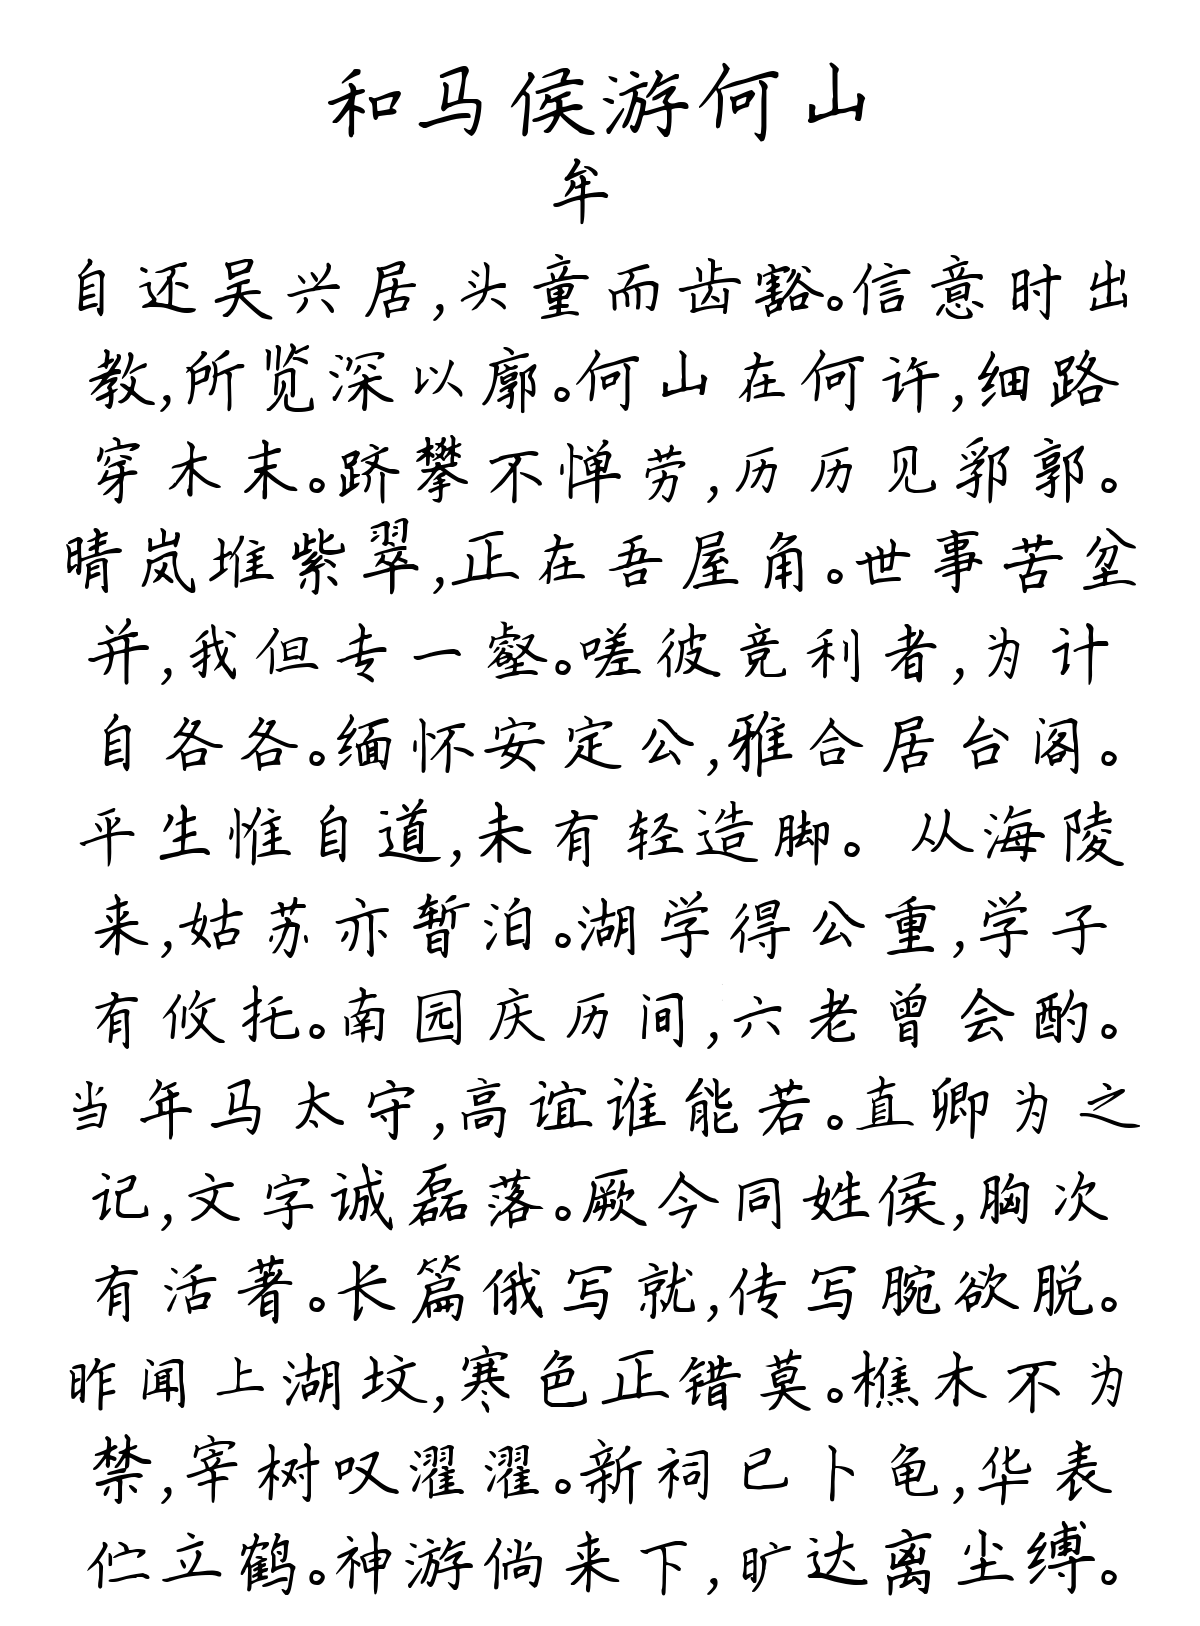 和马侯游何山
牟
自还吴兴居,头童而齿豁。信意时出
教,所览深以廓。何山在何许,细路
穿木末。跻攀不惮劳,历历见郛郭。
晴岚堆紫翠,正在吾屋角。世事苦坌
并,我但专一壑。嗟彼竞利者,为计
自各各。缅怀安定公,雅合居台阁。
平生惟自道,未有轻造脚。从海陵
来,姑苏亦暂泊。湖学得公重,学子
有攸托。南园庆历间,六老曾会酌。
当年马太守,高谊谁能若。直卿为之
记,文字诚磊落。厥今同姓侯,胸次
有活著。长篇俄写就,传写腕欲脱。
昨闻上湖坟,寒色正错莫。樵木不为
禁,宰树叹濯濯。新祠已卜龟,华表
伫立鹤。神游倘来下,旷达离尘缚。